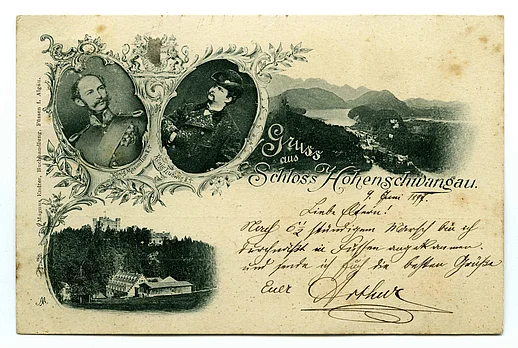 Magnus Endter, Buchhandlung, Füssen i. Algäu.
Gruss
aus
Schloss Hohenschwangau.
Juni
Liebe Eltern!
Nach 6½ stündigem Marsch bin ich
in Füssen angekommen.
und sende ich Euch die besten Grüße
Euer Arthur